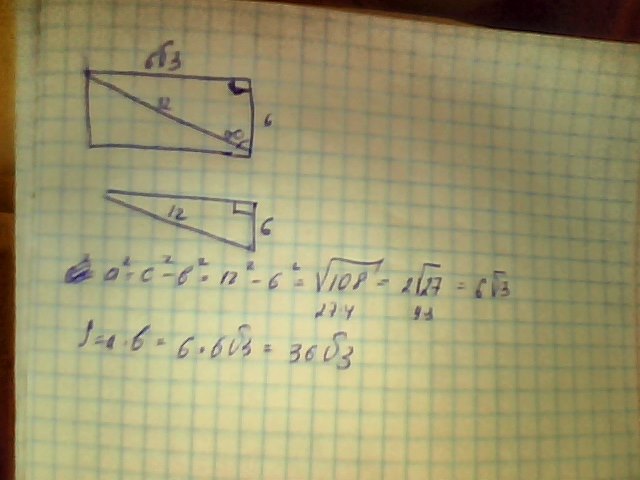 6√3
12
6
12
6
a² = c² - b² = 12² - 6² = √108 = 2√27 = 6√3
27 4 9 3
S = a · b = 6 · 6√3 = 36√3